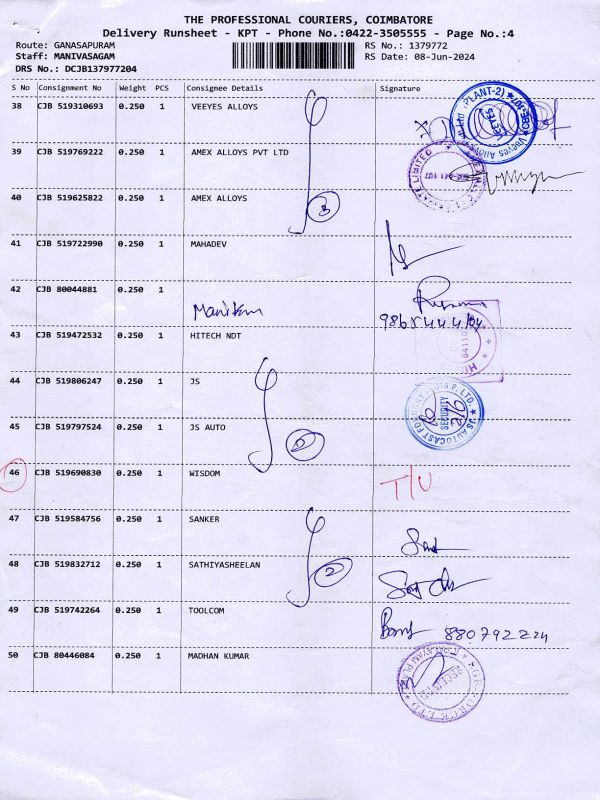 THE PROFESSIONAL COURIERS, COIMBATORE
Delivery Runsheet - KPT - Phone No.:0422-3505555 - Page No.:4
Route: GANASAPURAM RS No.: 1379772
Staff: MANIVASAGAM RS Date: 08-Jun-2024
DRS No.: DCJB137977204
S No Consignment No Weight PCS Consignee Details Signature
38 CJB 519310693 0.250 1 VEEYES ALLOYS
39 CJB 519769222 0.250 1 AMEX ALLOYS PVT LTD
40 CJB 519625822 0.250 1 AMEX ALLOYS
3
41 CJB 519722990 0.250 1 MAHADEV
42 CJB 80044881 0.250 1
43 CJB 519472532 0.250 1 HITECH NDT
44 CJB 519806247 0.250 1 JS
45 CJB 519797524 0.250 1 JS AUTO
SECURITY
46 CJB 519690830 0.250 1 WISDOM T/U
47 CJB 519584756 0.250 1 SANKER
48 CJB 519832712 0.250 1 SATHIYASHEELAN
2
49 CJB 519742264 0.250 1 TOOLCOM
50 CJB 80446084 0.250 1 MADHAN KUMAR